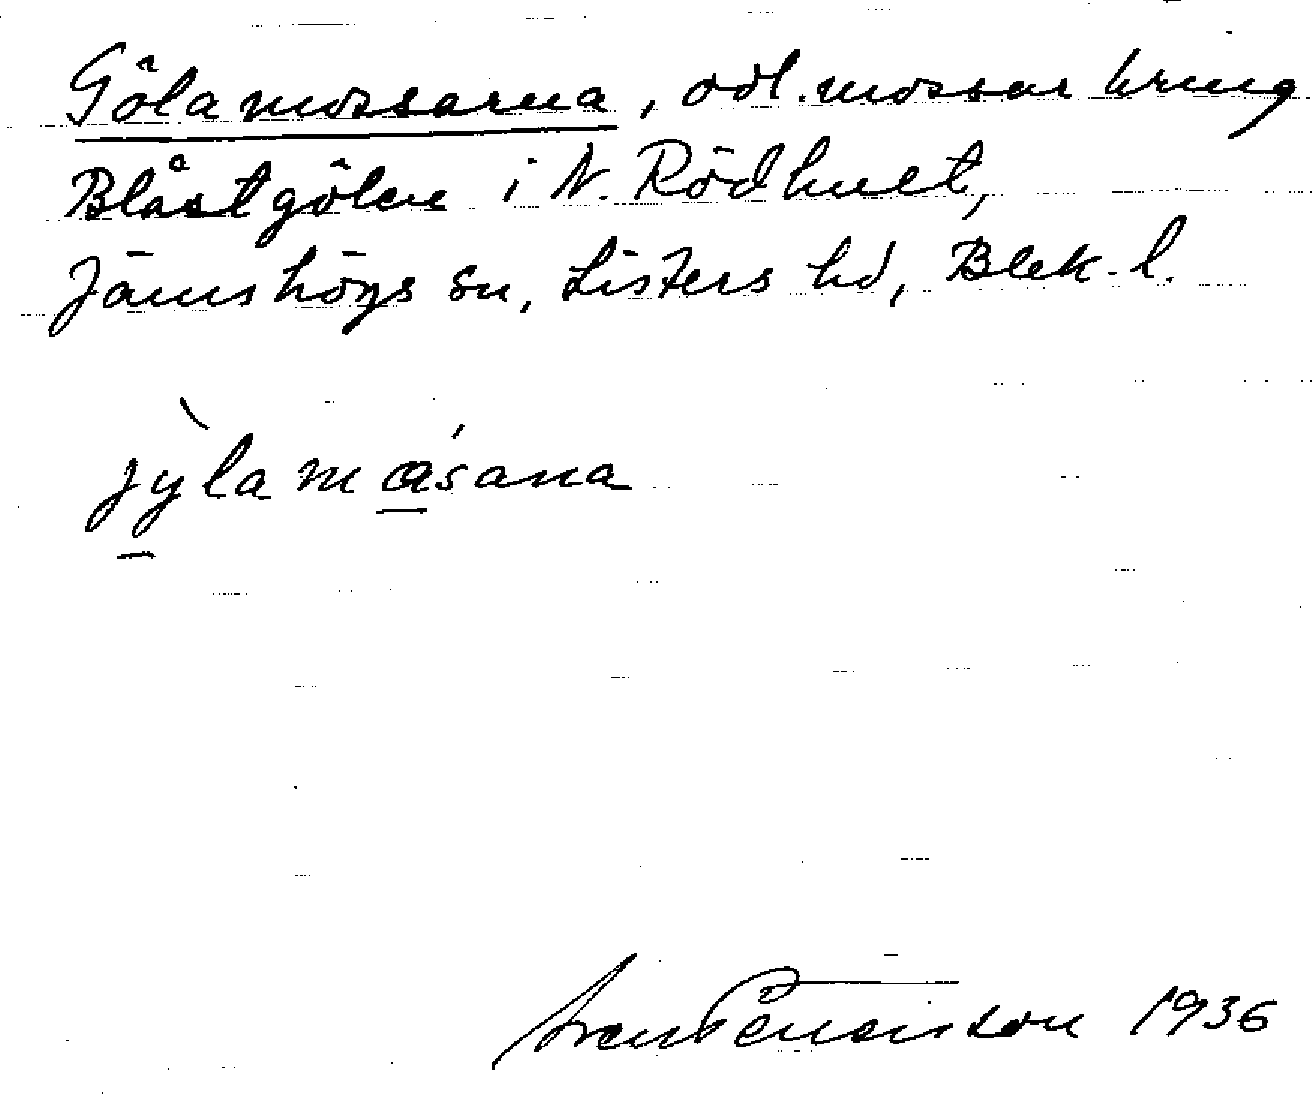 Gölamossarna, odl. mossar kring
Blåstgölen i N. Rödhult,
Jämshögs sn, Listers hd, Blek. l.
jỳlamásana
Sven Benson 1936